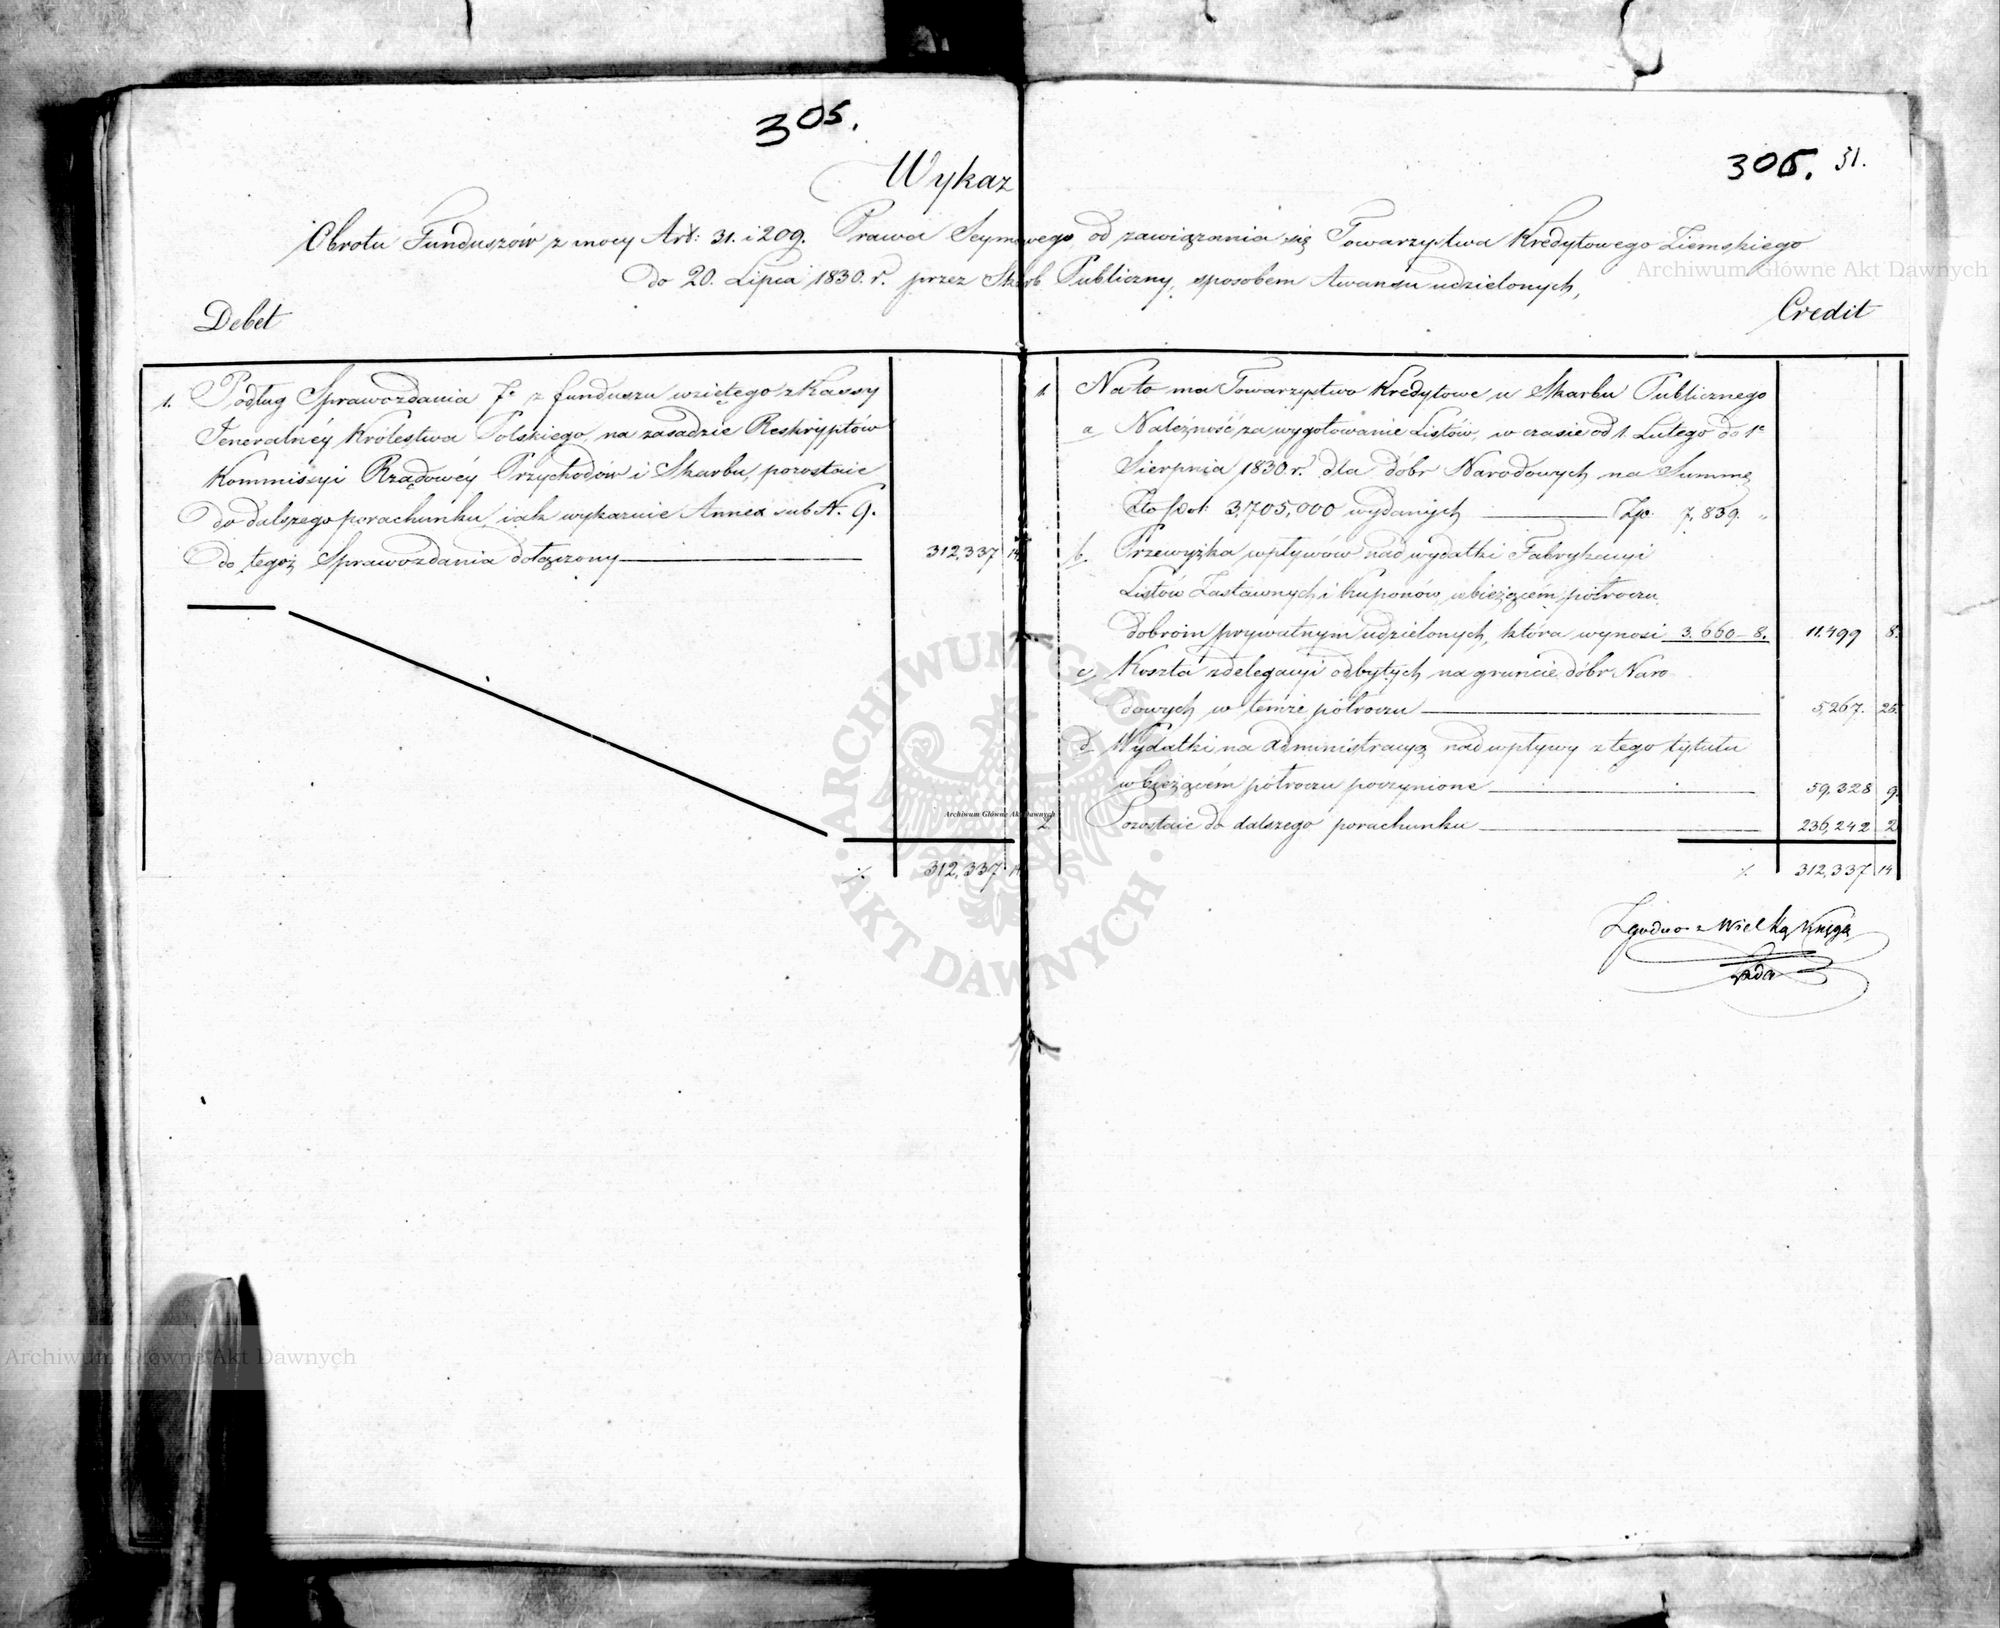 305.
306. 31.
Wykaz
Obrotu Funduszów z mocy Art: 31. i 209. Prawa Seymowego, od zawiązania się Towarzystwa Kredytowego Ziemskiego
do 20. Lipca 1830. r. przez Skarb Publiczny, sposobem Awansu udzielonych,
Debet
Credit
1. Podług Sprawozdania 7e z funduszu wziętego z Kassy
Jeneralnéy Królestwa Polskiego, na zasadzie Reskryptów
Kommissyi Rządowéy Przychodów i Skarbu, pozostaie
do dalszego porachunku, iak wykazuie Annex sub N. 9.
do tegoż Sprawozdania dołączony 312,337 14
% 312,337 14
1. Na to ma Towarzystwo Kredytowe u Skarbu Publicznego
a, Należność za wygotowanie Listów, w czasie od 1. Lutego do 1e
Sierpnia 1830. r. dla dóbr Narodowych na Summę
Zło: pol: 3,705,000 wydanych Zp. 7,839. „
b. Przewyżka wpływów nad wydatki Fabrykacyi
Listów Zastawnych i Kuponów, w bieżącém półroczu
dobrom prywatnym udzielonych, która wynosi 3.660 - 8. 11.499 8.
c, Koszta z delegacyi odbytych na gruncie dóbr Naro
dowych w temże półroczu 5,267. 25.
d. Wydatki na administracyą nad wpływy z tego tytułu
w bieżącém półroczu poczynione 59.328 9.
2. Pozostaie do dalszego porachunku 236,242 2
% 312,337 14
Zgodno z Wielką Księgą
Archiwum Główne Akt Dawnych
Archiwum Główne Akt Dawnych
Archiwum Główne Akt Dawnych
ARCHIWUM GŁÓWNE AKT DAWNYCH